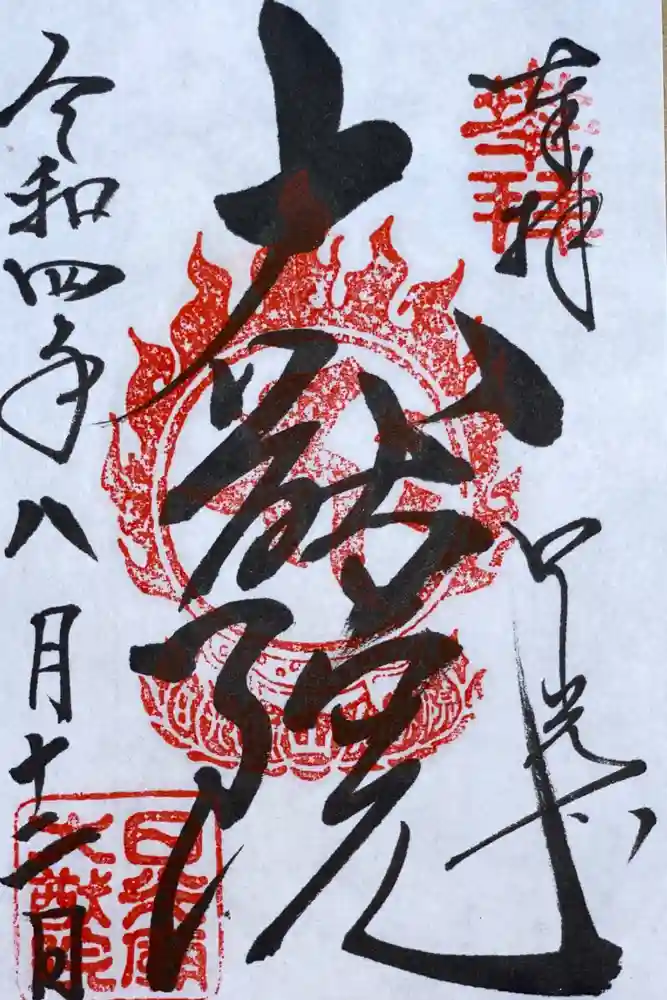 奉拝
日光山
大猷院
令和四年八月十二日
日光山
大猷院